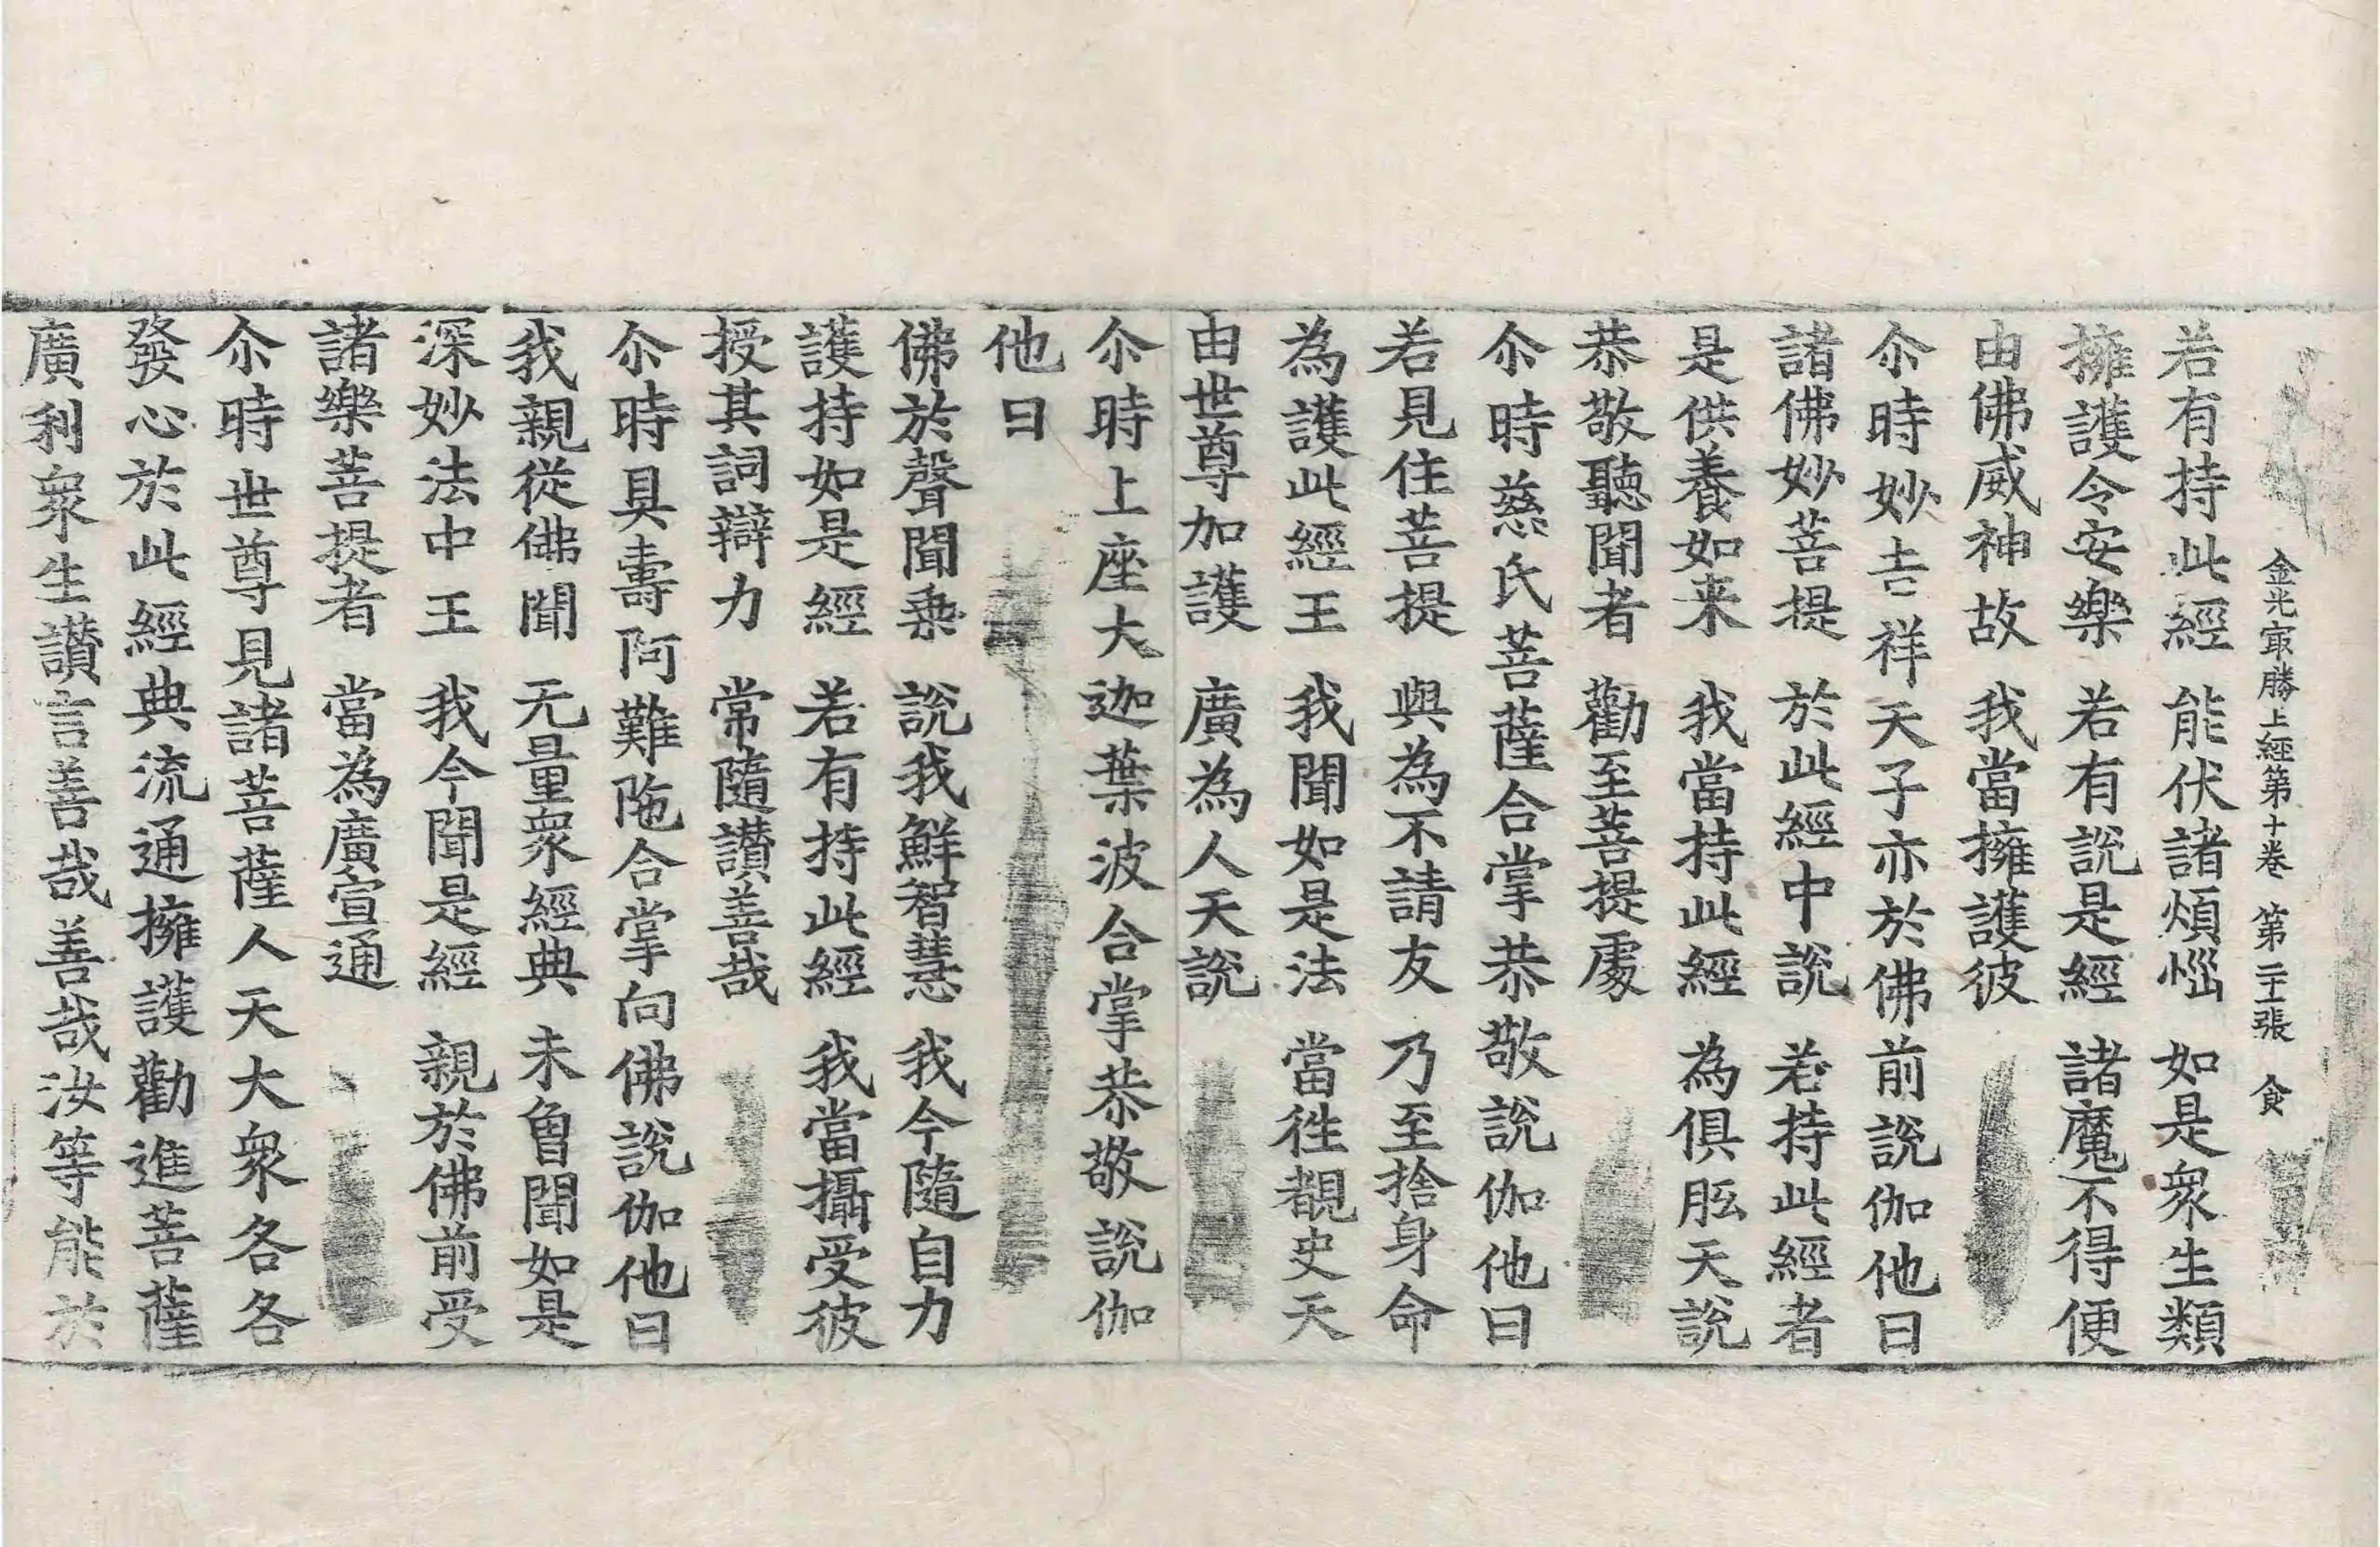 金光冣勝上經第十卷 第二十一張 食
若有持此經 能伏諸煩惱 如是衆生類
擁護令安樂 若有説是經 諸魔不得便
由佛威神故 我當擁護彼
尒時妙吉祥天子亦於佛前説伽他曰
諸佛妙菩提 於此經中説 若持此經者
是供養如来 我當持此經 為俱胝天説
恭敬聽聞者 勸至菩提處
尒時慈氏菩薩合掌恭敬説伽他曰
若見住菩提 與為不請友 乃至捨身命
為護此經王 我聞如是法 當徃覩史天
由世尊加護 廣為人天説
尒時上座大迦葉波合掌恭敬説伽
他曰
佛於聲聞乗 説我鮮智慧 我今隨自力
護持如是經 若有持此經 我當攝受彼
授其詞辯力 常隨讃善哉
尒時具壽阿難陁合掌向佛説伽他曰
我親從佛聞 无量衆經典 未曾聞如是
深妙法中王 我今聞是經 親於佛前受
諸樂菩提者 當為廣宣通
尒時世尊見諸菩薩人天大衆各各
發心於此經典流通擁護勸進菩薩
廣利衆生讃言善哉善哉汝等能於